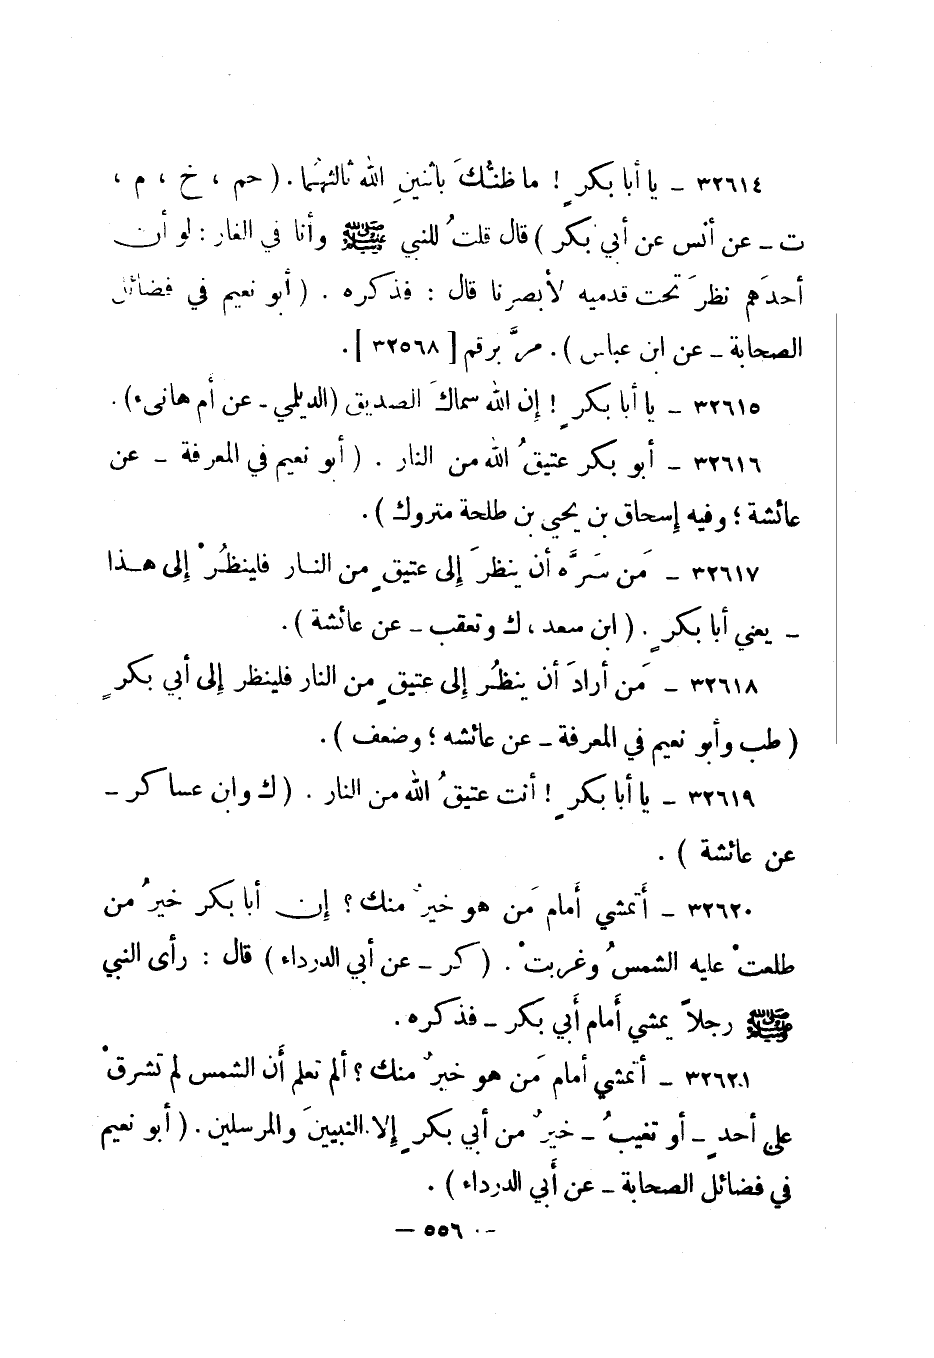 ٣٢٦١٤ ـ يا أبا بكرٍ ! ما ظنُّكَ باثنينِ الله ثالثهُما . ( حم ، خ ، م ،
ت ـ عن أنس عن أبي بكر ) قال قلتُ للنبي ﷺ وأنا في الغار : لو أن
أحدَهم نظرَ تحت قدميه لأبصرنا قال : فذكره . ( أبو نعيم في فضائل
الصحابة ـ عن ابن عباس ) . مرَّ برقم [ ٣٢٥٦٨ ] .
٣٢٦١٥ ـ يا أبا بكرٍ ! إن الله سماكَ الصديق (الديلمي ـ عن أم هانىء) .
٣٢٦١٦ ـ أبو بكر عتيقُ الله من النار . ( أبو نعيم في المعرفة ـ عن
عائشة ؛ وفيه إسحاق بن يحيى بن طلحة متروك ) .
٣٢٦١٧ ـ مَن سَرَّه أن ينظرَ إلى عتيقٍ من النـار فلينظُرْ إلى هـذا
ـ يعني أبا بكرٍ . ( ابن سعد ، ك وتعقب ـ عن عائشة ) .
٣٢٦١٨ ـ مَن أرادَ أن ينظُر إلى عتيقٍ من النار فلينظر إلى أبي بكرٍ
( طب وأبو نعيم في المعرفة ـ عن عائشه ؛ وضعف ) .
٣٢٦١٩ ـ يا أبا بكرٍ ! أنت عتيقُ الله من النار . ( ك وابن عساكر ـ
عن عائشة ) .
٣٢٦٢٠ ـ أَتمشي أَمام مَن هو خيرٌ منك ؟ إن أبا بكر خيرُ من
طلعتْ عليه الشمسُ وغربتْ . ( كر ـ عن أبي الدرداء ) قال : رأى النبي
ﷺ رجلاً يمشي أَمام أَبي بكر ـ فذكره .
٣٢٦٢١ ـ أتمشي أمام مَن هو خيرٌ منك ؟ ألم تعلم أَن الشمس لم تشرقْ
على أحدٍ ـ أو تغيبُ ـ خيرٌ من أبي بكرٍ إلا النبيينَ والمرسلين . ( أبو نعيم
في فضائل الصحابة ـ عن أَبي الدرداء ) .
— ٥٥٦ —